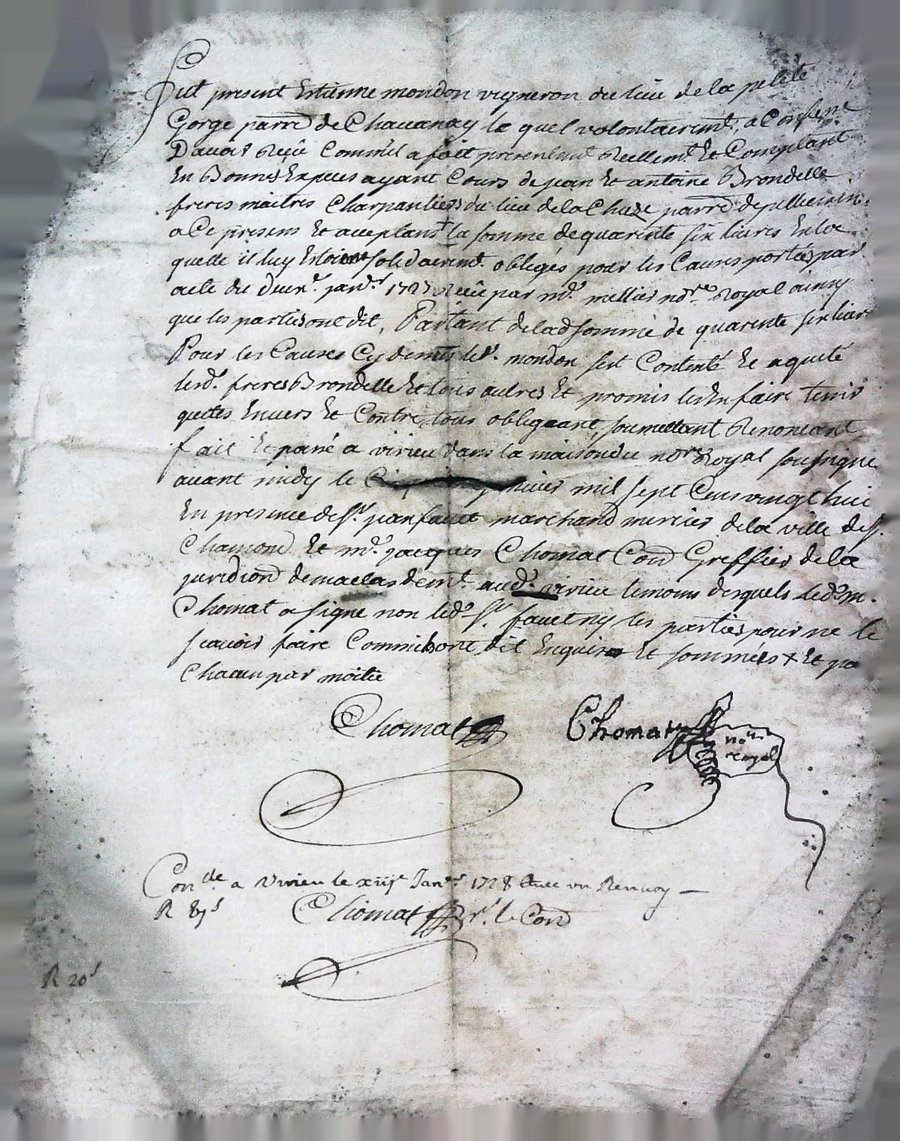 Fut present Estienne mondon vigneron du lieu de la petite
Gorge parr.e de Chavanay le quel volontairem.t a Confessé
D'avoir Reçu Comme il a fait presentem.t Reellem.t Et Comptant
En Bonnes Especes ayant Cours de jean Et antoine Brondelle
freres maitres Charpantiers du lieu de la Chaze parr.e de pellussin
a Ce presens Et acceptans la somme de quarente six livres En la
quelle il luy Estoient solidairem.t obliges pour les Causes portées par
acte du janv.r 1727 Reçu par m.e mellier no.re Royal ainsy
que les parties ont dit, Partant de lad somme de quarente six livres
Pour les Causes Cy dernier led. mondon s'est Contenté Et a quité
lesd. freres Brondelle Et tous autres Et promis les En faire tenir
quittes Envers Et Contre tous obligeant, soumettant Renoncant
fait Et passé a virieu dans la maison du no.re Royal soussigné
avant midy le janvier mil sept Cens vingt huit
En presence de S.r jean fauet marchand mercier de la ville de S.t
Chamond Et m.e jacques Chomat Con.d Greffier de la
juridion.d de maclas dem.t aud. virieu temoins desquels led. m.
Chomat a signé non led. S.r fauet ny les parties pour ne le
scavoir faire Comme ils ont dit Enquis Et sommés + Et pa
Chacun par moitie
Chomat
Chomat
no.re
royal
Con.lle a Virieu le xiije Jan.er 1728 avec un Renvoy
R
Chomat p.r le Con.d
R 20 s